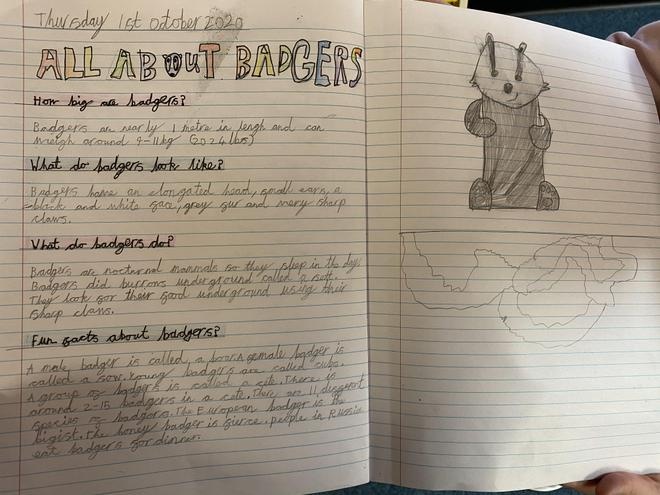 Thursday 1st October 2020
ALL ABOUT BADGERS
How big are badgers?
Badgers are nearly 1 metre in lengh and can
weigh around 9-11kg (20 24 lbs)
What do badgers look like?
Badgers have an elongated head, small ears, a
black and white face, grey fur and very sharp
claws.
What do badgers do?
Badgers are nocturnal mammals so they sleep in the day.
Badgers did burrows underground called a sett.
They look for their food underground using their
sharp claws.
Fun facts about badgers?
A male badger is called, a boar. A female badger is
called a sow. Young badgers are called cubs.
A group of badgers is called a cete. There is
around 2-15 badgers in a cete. There are 11 different
species of badgers. The European badger is the
bigist. The honey badger is fierce. people in Russia
eat badgers for dinner.